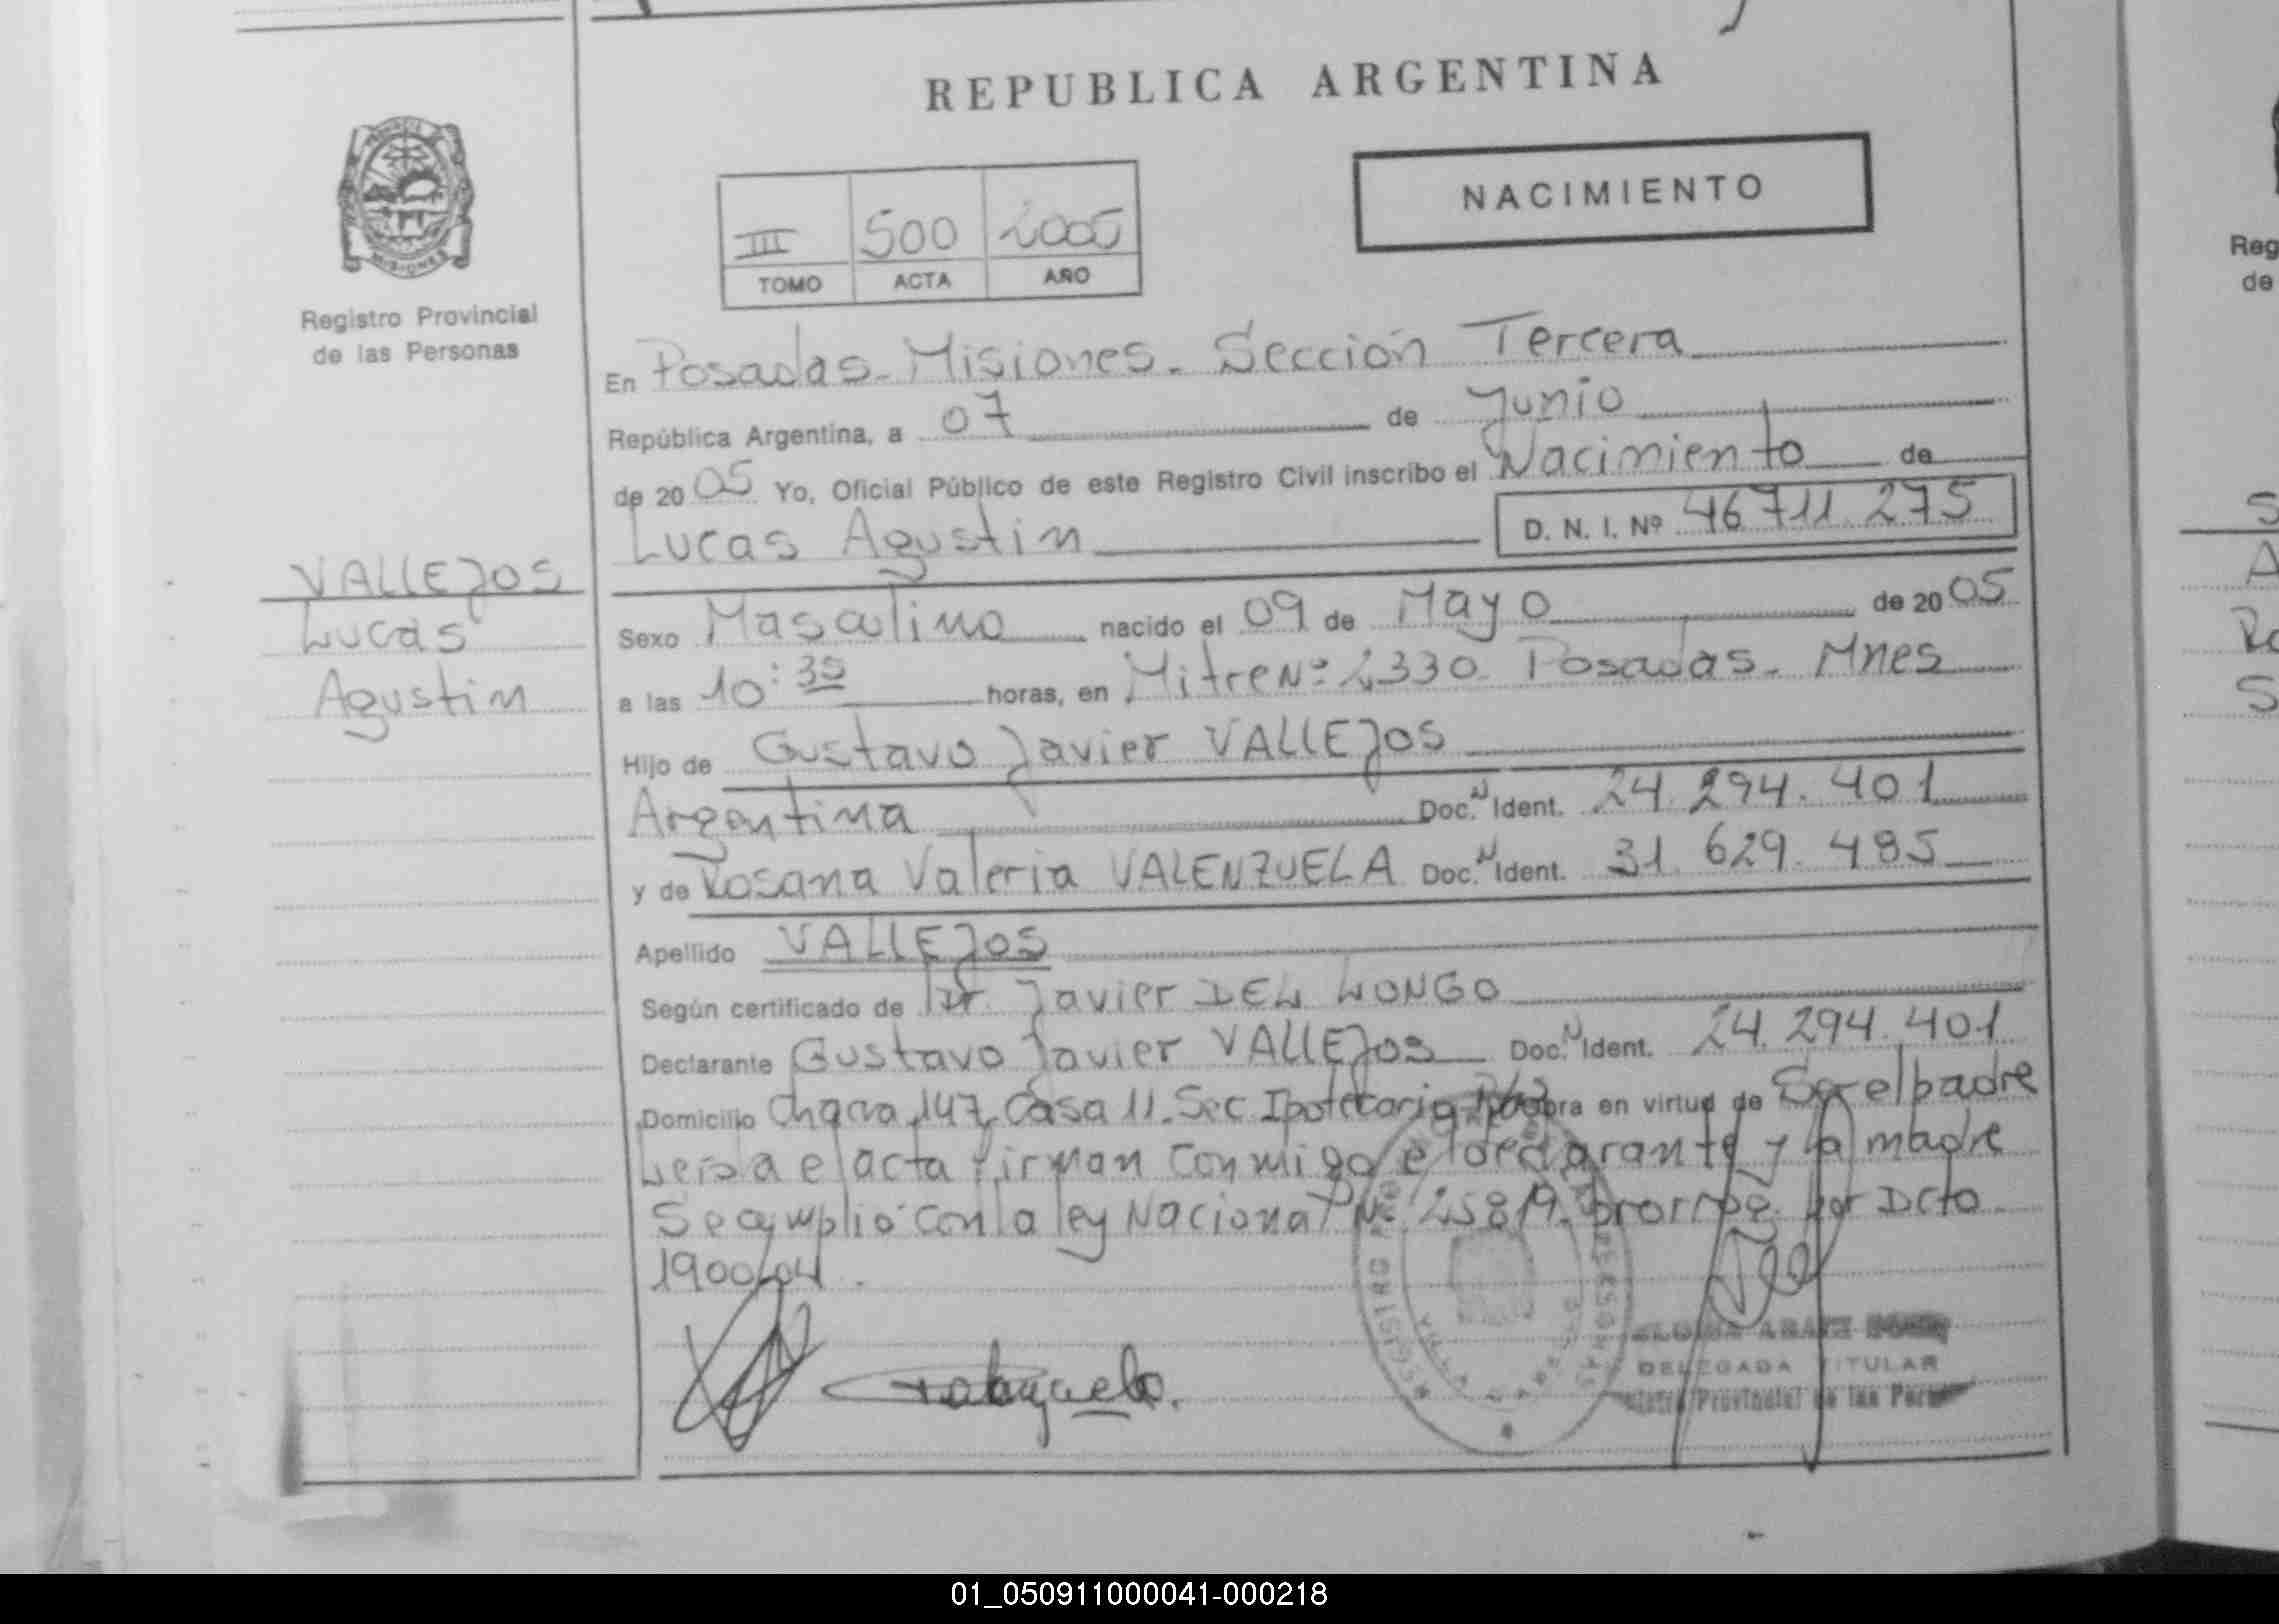 REPUBLICA ARGENTINA
NACIMIENTO
III 500 2005
TOMO ACTA AÑO
MISIONES
Registro Provincial
de las Personas
En Posadas - Misiones. Sección Tercera
República Argentina, a 07 de Junio
de 2005 Yo, Oficial Público de este Registro Civil inscribo el Nacimiento de
Lucas Agustin D. N. I. Nº 46711.275
VALLEJOS
Lucas
Agustin
Sexo Masculino nacido el 09 de Mayo de 2005
a las 10:35 horas, en Mitre Nº 2330. Posadas - Mnes
Hijo de Gustavo Javier VALLEJOS
Argentina Doc. N Ident. 24.294.401
y de Rosana Valeria VALENZUELA Doc. N Ident. 31.629.485
Apellido VALLEJOS
Según certificado de Dr. Javier DEL LONGO
Declarante Gustavo Javier VALLEJOS Doc. N Ident. 24.294.401
Domicilio Chacra 147, Casa 11. Sec Ipotecaria obra en virtud de Ser el padre
Leida el acta firman conmigo el declarante y la madre
Se cumplió con la ley Nacional Nº 25819. prorrog. por Dcto
1900/04.
DELEGADA TITULAR
Provincial de las Pers
Reg
de
01_050911000041-000218